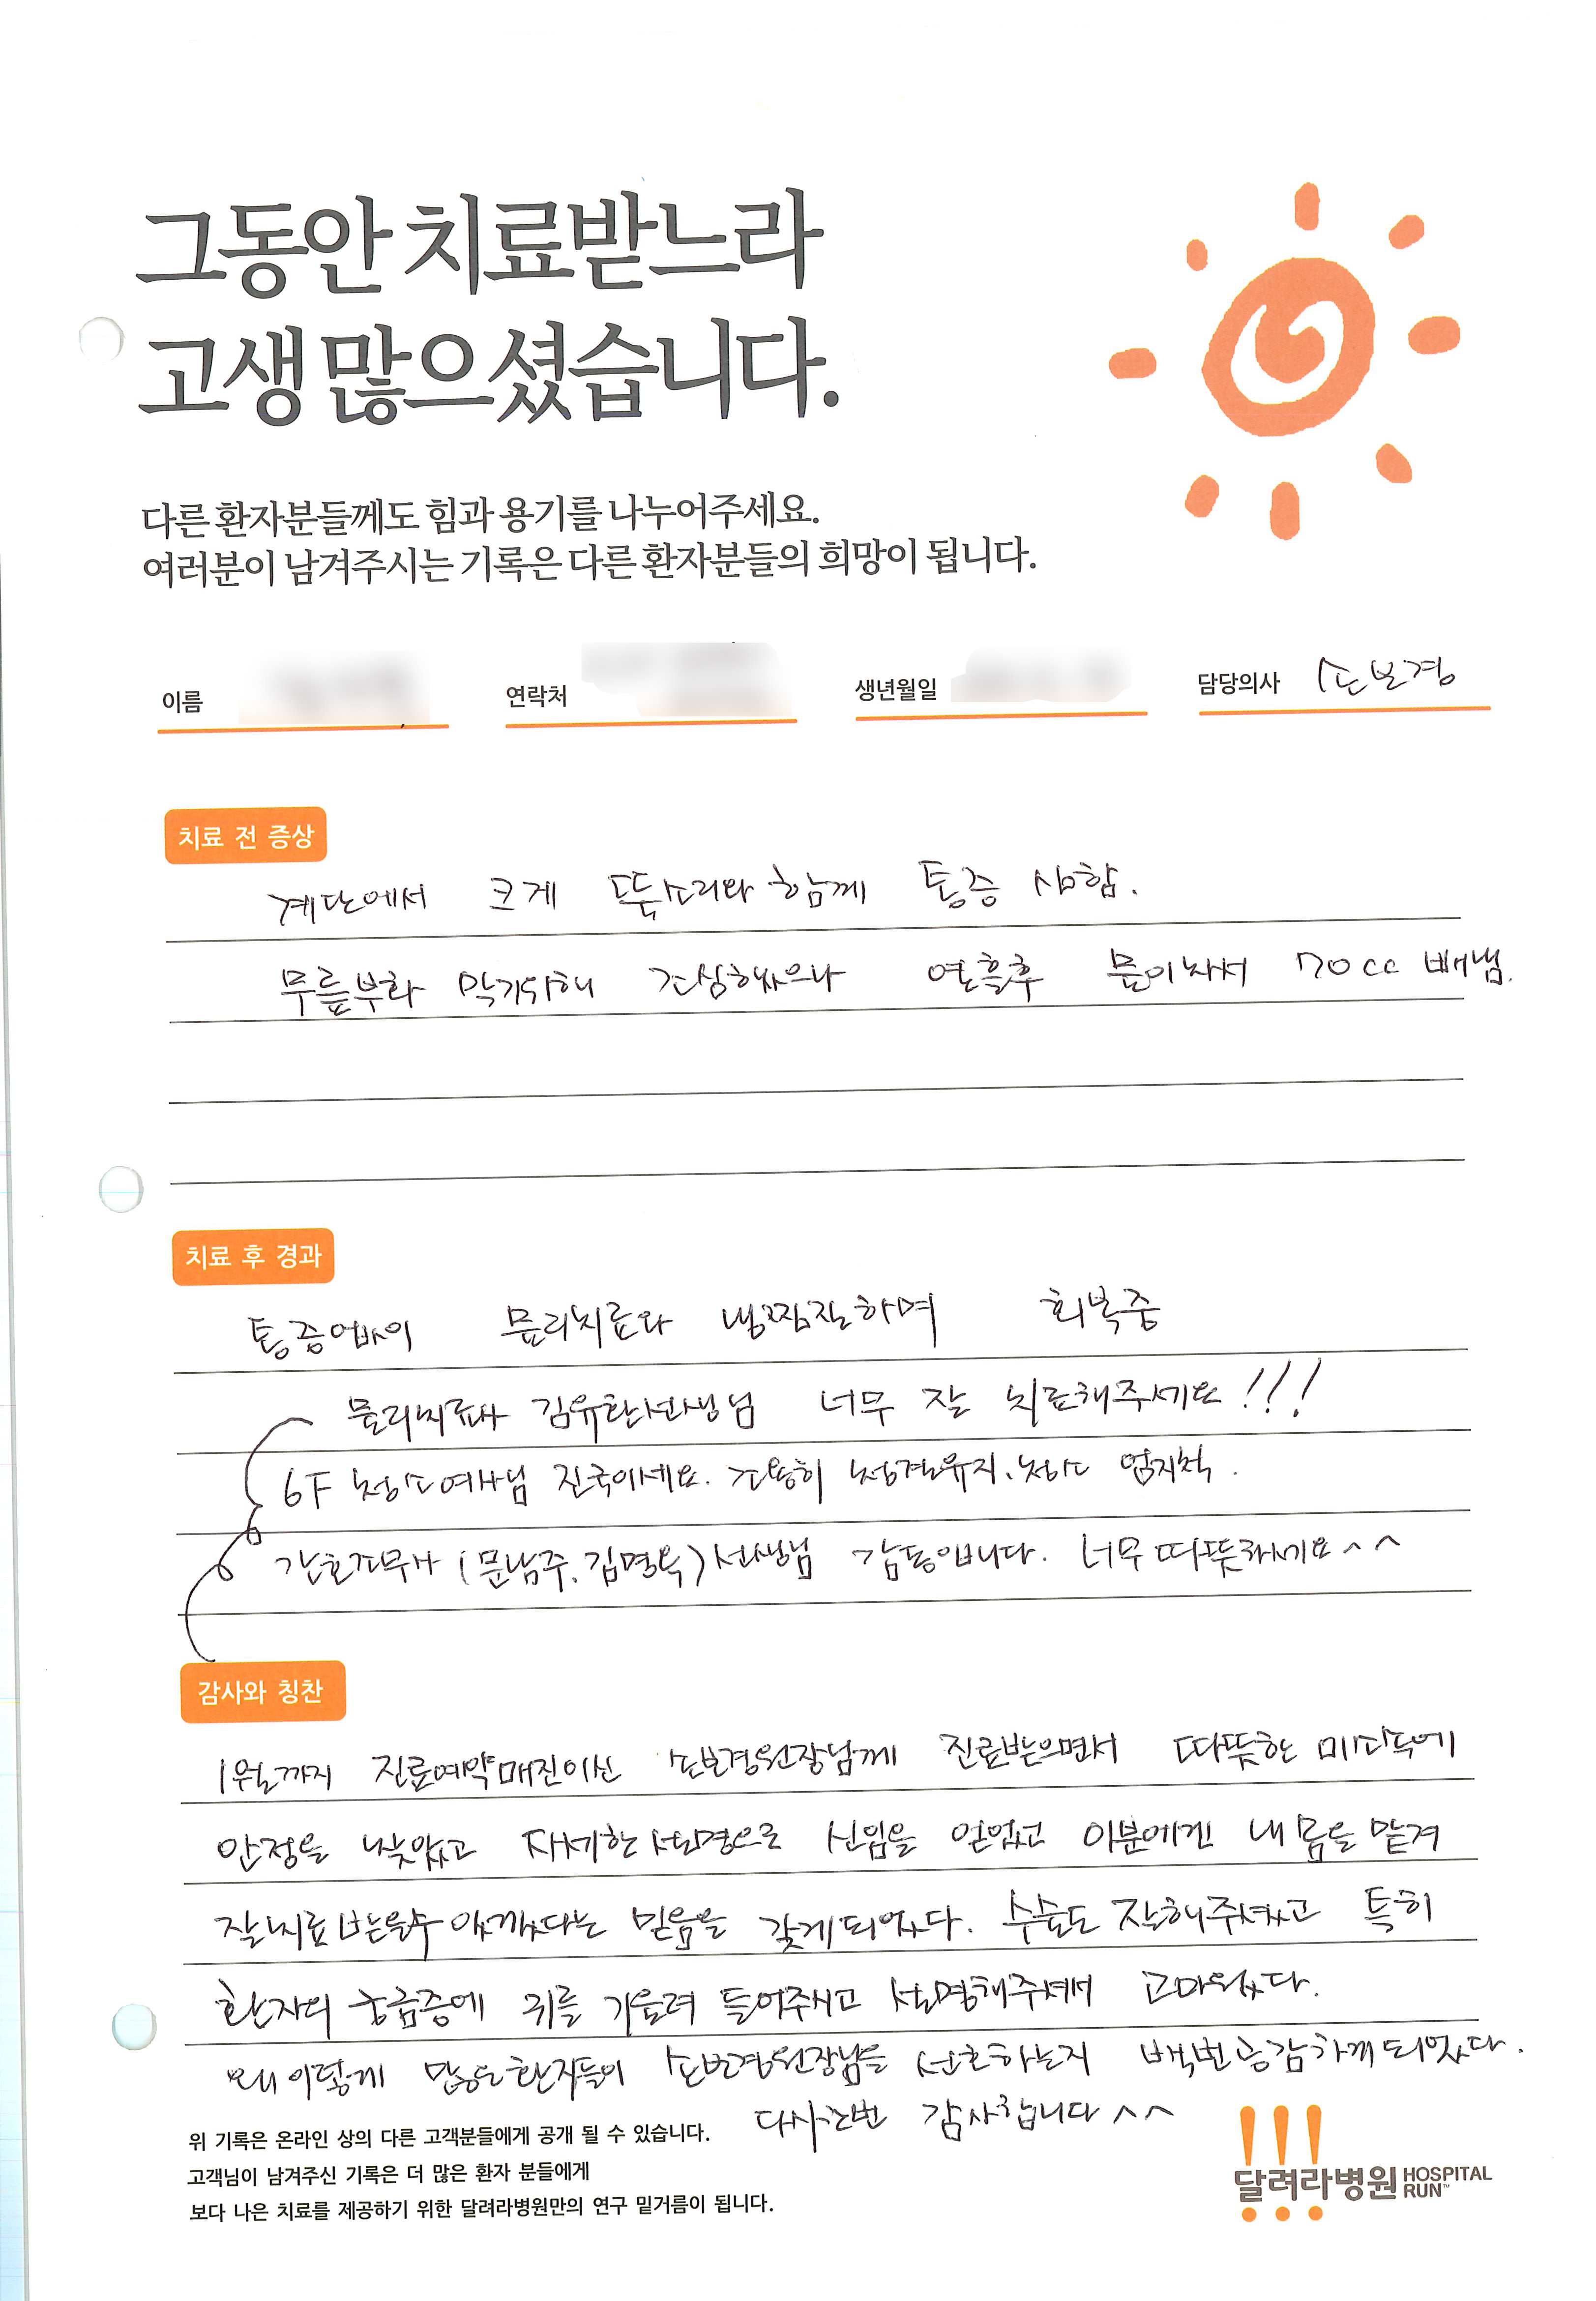 그동안 치료받느라
고생 많으셨습니다.
다른 환자분들께도 힘과 용기를 나누어주세요.
여러분이 남겨주시는 기록은 다른 환자분들의 희망이 됩니다.
이름 연락처 생년월일 담당의사 손보경
치료 전 증상
계단에서 크게 뚝소리와 함께 통증 심함.
무릎부화 막기위해 조심했으나 열흘후 물이차서 70cc 빼냄.
치료 후 경과
통증없이 물리치료와 냉찜질하며 회복중
물리치료사 김유환선생님 너무 잘 치료해주세요!!!
6F 청소여사님 진국이세요. 조용히 청결유지, 청소 엄지척.
간호조무사 (문남주, 김명옥) 선생님 감동입니다. 너무 따뜻하세요^^
감사와 칭찬
1월까지 진료예약매진이신 손보경원장님께 진료받으면서 따뜻한 미소에
안정을 찾았고 자세한 설명으로 신임을 얻었고 이분에겐 내 몸을 맡겨
잘치료 받을수 있겠다는 믿음을 갖게되었다. 수술도 잘해주셨고 특히
환자의 궁금증에 귀를 기울려 들어주시고 설명해주셔서 고마웠다.
왜 이렇게 많은환자들이 손보경원장님을 선호하는지 백번공감하게되었다.
다시한번 감사합니다^^
위 기록은 온라인 상의 다른 고객분들에게 공개 될 수 있습니다.
고객님이 남겨주신 기록은 더 많은 환자 분들에게
보다 나은 치료를 제공하기 위한 달려라병원만의 연구 밑거름이 됩니다.
달려라병원 HOSPITAL RUN™